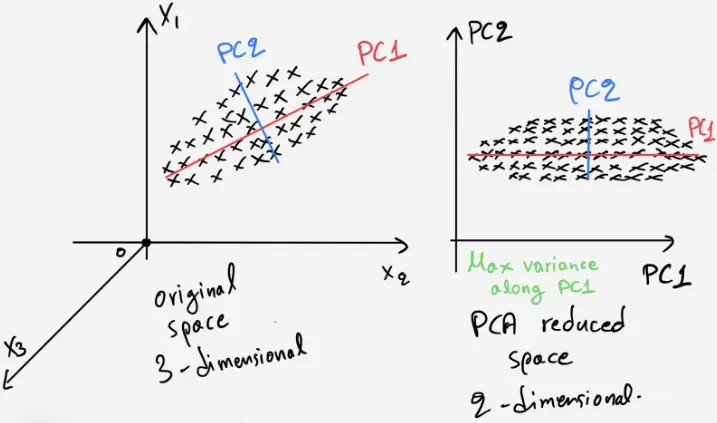 X₁
PC2
PC1
0
X₂
X3
original
space
3-dimensional
PC2
PC2
PC1
Max variance
along PC1
PC1
PCA reduced
space
2-dimensional.